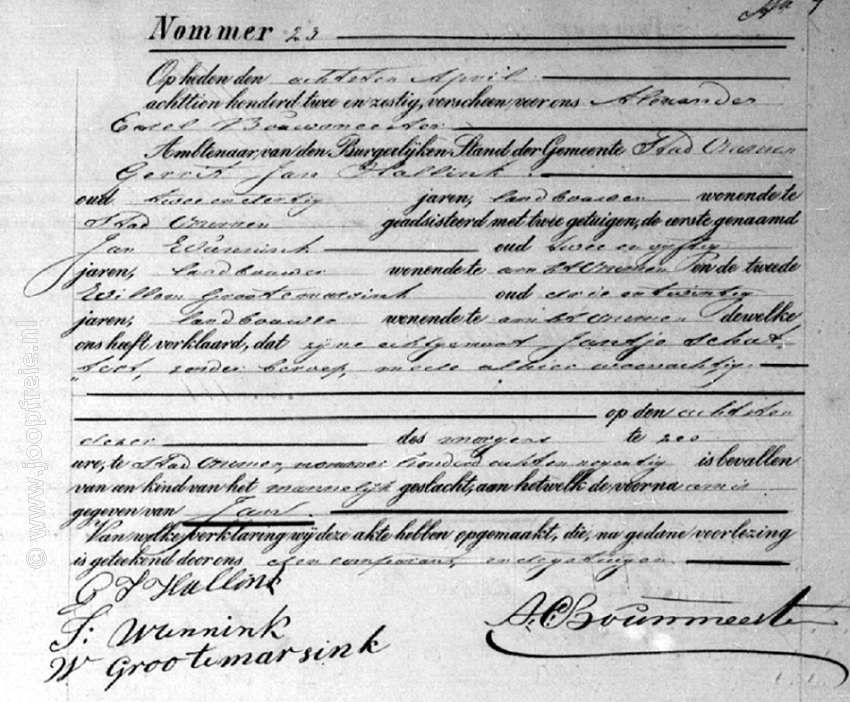 Nommer 23
Op heden den achtsten April
achttien honderd twee en zestig, verscheen voor ons Alexander
Carel Bouwmeester
Ambtenaar van den Burgerlijken Stand der Gemeente Stad Ommen
Gerrit Jan Hallink
oud twee en dertig jaren, landbouwer wonende te
Stad Ommen geadsisteerd met twee getuigen, de eerste genaamd
Jan Wunnink oud twee en vijftig
jaren, landbouwer wonende te ambt Ommen en de tweede
Willem Grootemarsink oud drie en twintig
jaren, landbouwer wonende te ambt Ommen dewelke
ons heeft verklaard, dat zijne echtgenoot Jantje Schot
tert, zonder beroep, mede alhier woonachtig
op den achtsten
dezer des morgens te zes
ure, te Stad Ommen, nommer honderd acht en negentig is bevallen
van een kind van het mannelijk geslacht, aan hetwelk de voornaam is
gegeven van Jan
Van welke verklaring wij deze akte hebben opgemaakt, die, na gedane voorlezing
is geteekend door ons den comparant en de getuigen
G J Hallink
J: Wunnink
W Grootemarsink
A.C. Bouwmeester
© www.joopfreie.nl